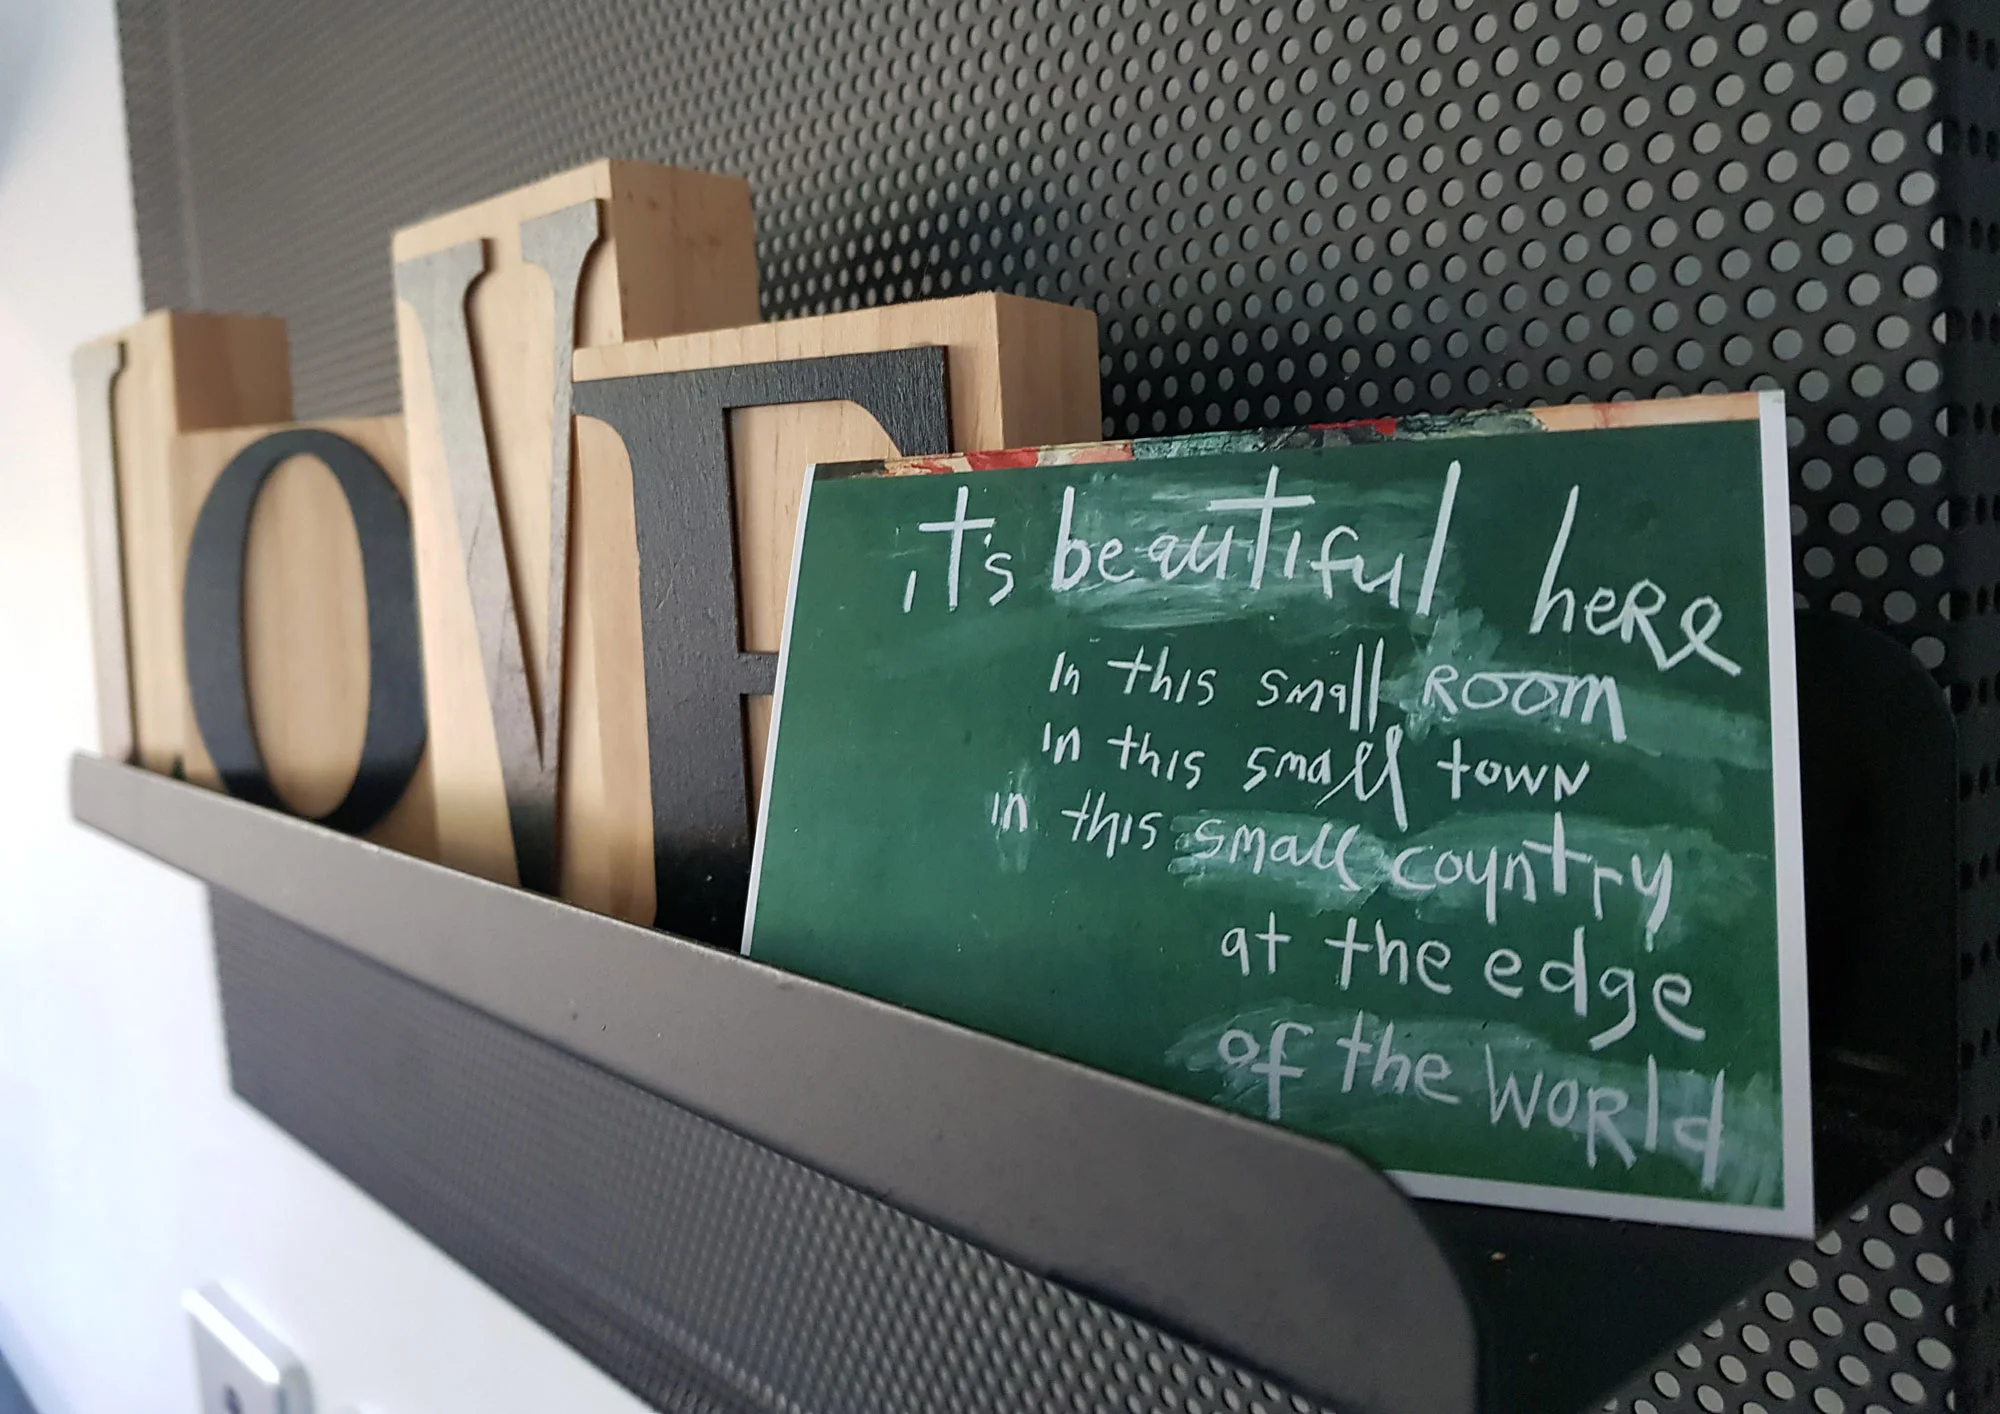 LOVE
it's beautiful here
in this small room
in this small town
in this small country
at the edge
of the world